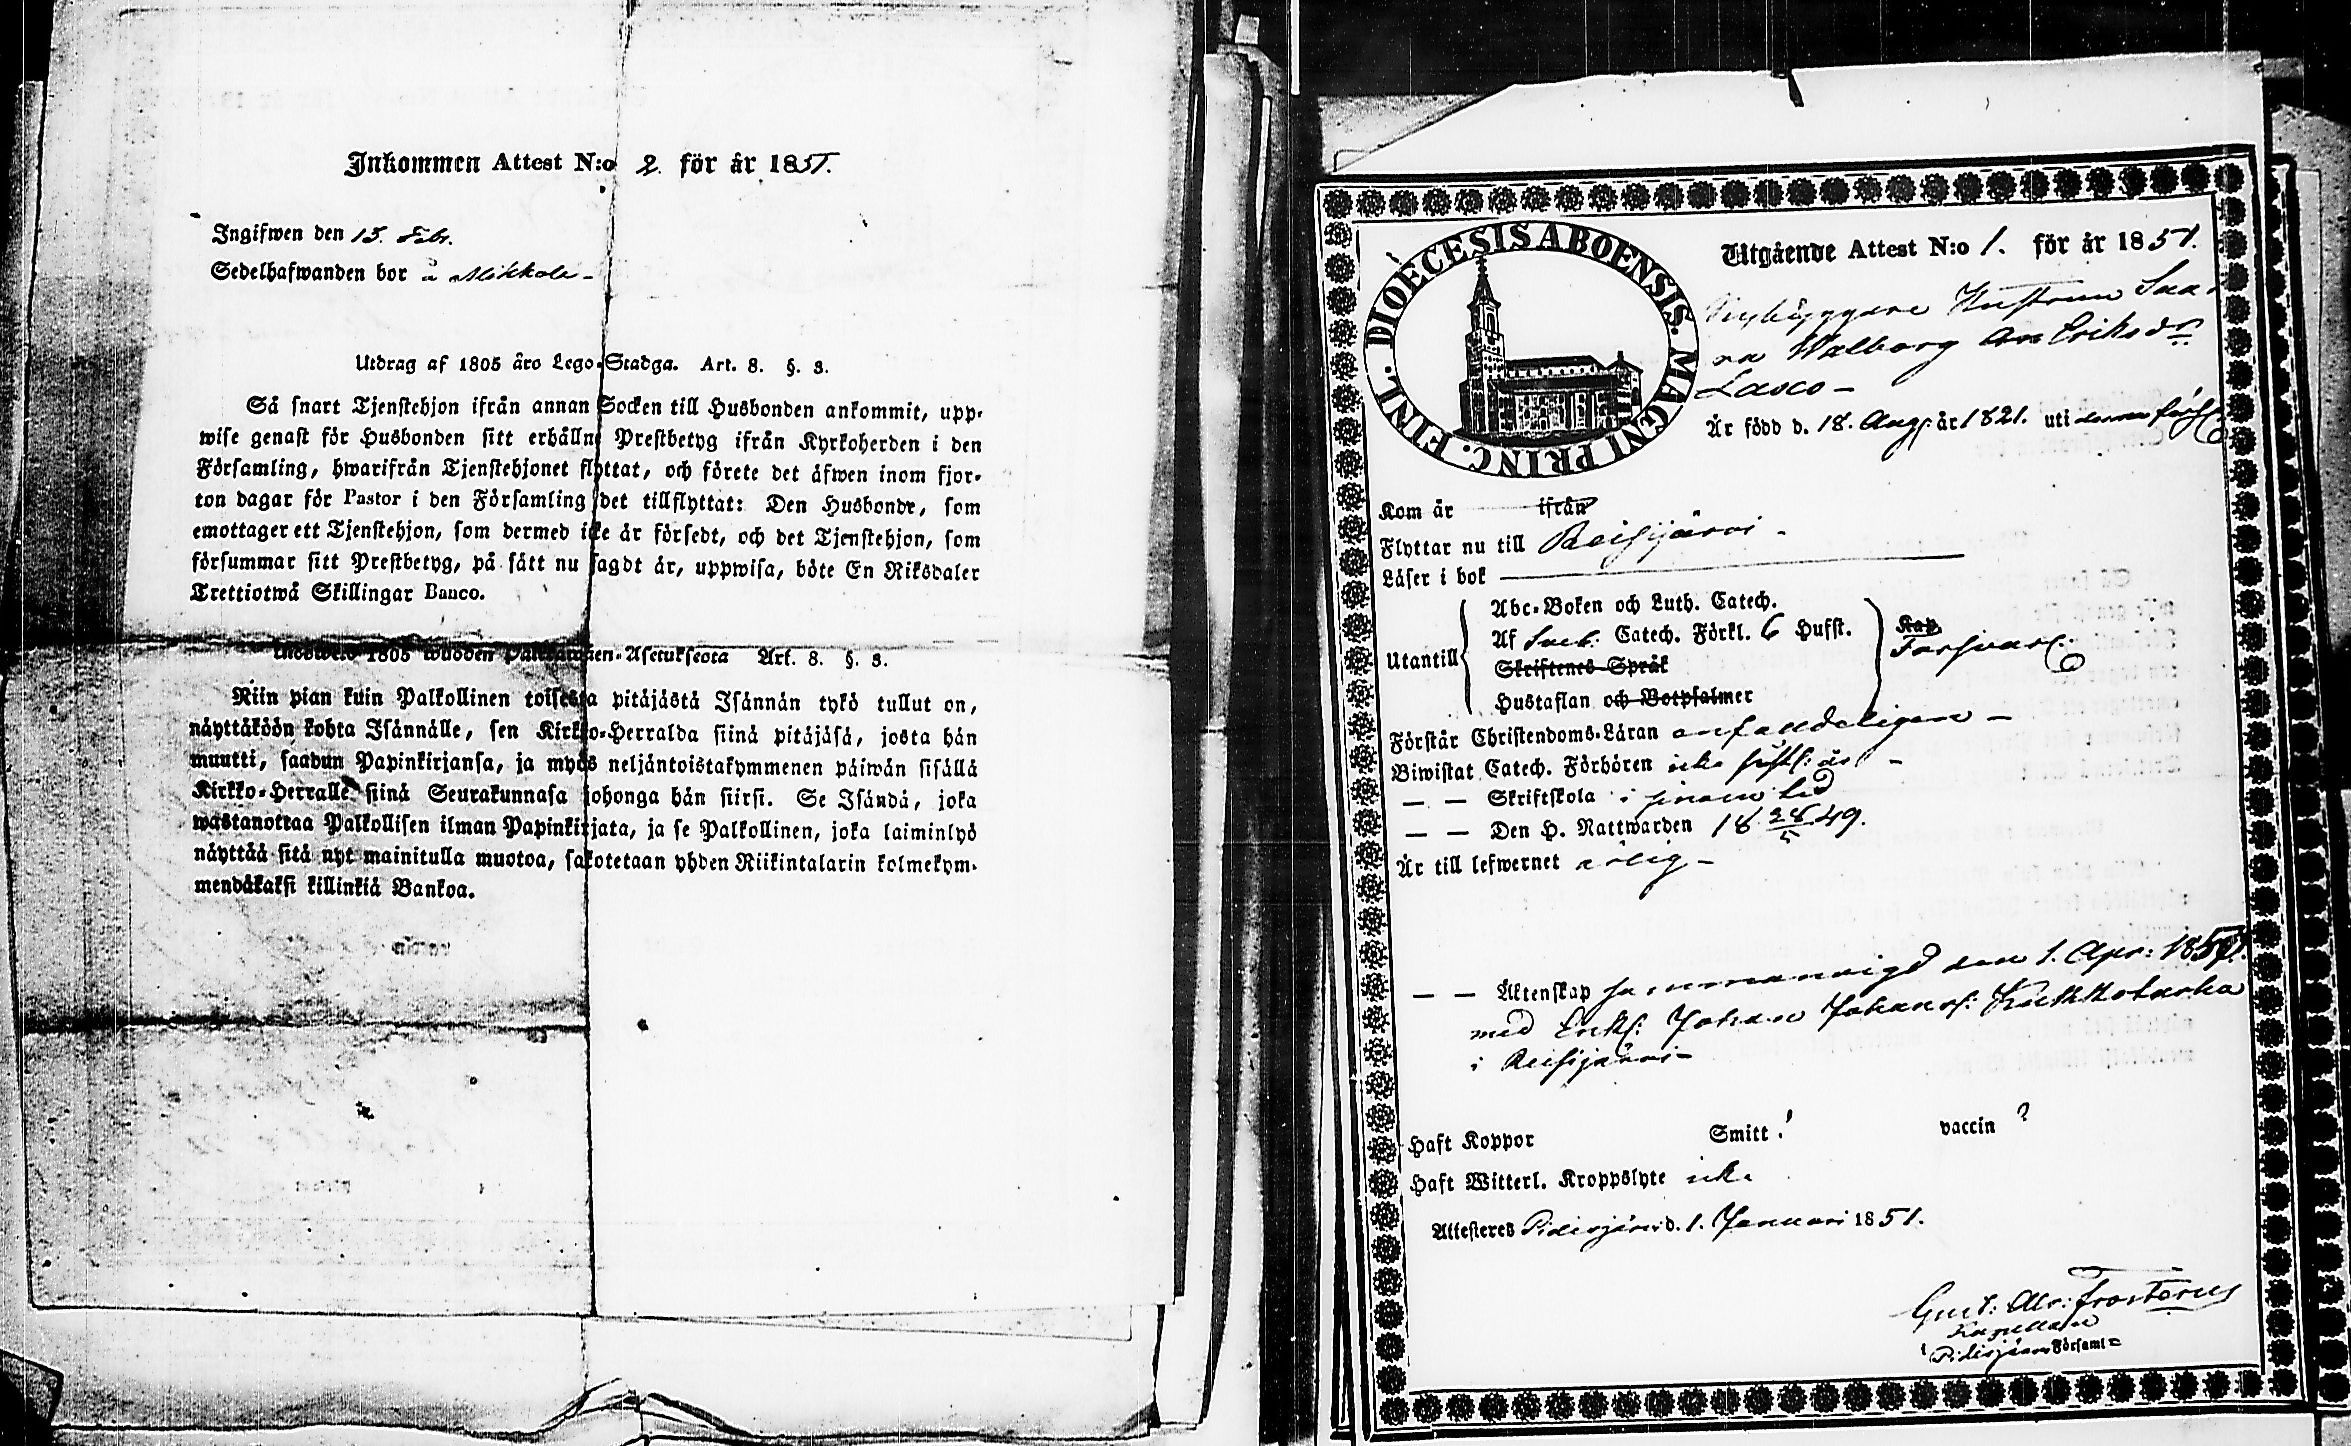 Inkommen Attest N:o 2. för år 1851.
Ingifwen den 13. Febr.
Sedelhafwanden bor å Mikkola -
Utdrag af 1805 års Lego-Stadga. Art. 8. §. 3.
Så snart Tjenstehjon ifrån annan Socken till Husbonden ankommit, upp-
wise genast för Husbonden sitt erhållne Prestbetyg ifrån Kyrkoherden i den
Församling, hwarifrån Tjenstehjonet flyttat, och förete det äfwen inom fjor-
ton dagar för Pastor i den Församling det tillflyttat: Den Husbonde, som
emottager ett Tjenstehjon, som dermed icke är försedt, och det Tjenstehjon, som
försummar sitt Prestbetyg, på sätt nu sagdt är, uppwisa, böte En Riksdaler
Trettiotwå Skillingar Banco.
1805 wuoden Palkollisten-Asetuksesta Art. 8. §. 3.
Niin pian kuin Palkollinen toisesta pitäjästä Isännän tykö tullut on,
näyttäköön kohta Isännälle, sen Kirkko-Herralda siinä pitäjäsä, josta hän
muutti, saadun Papinkirjansa, ja myös neljäntoistakymmenen päiwän sisällä
Kirkko-Herralle siinä Seurakunnasa johonga hän siirsi. Se Isändä, joka
wastanottaa Palkollisen ilman Papinkirjata, ja se Palkollinen, joka laiminlyö
näyttää sitä nyt mainitulla muotoa, sakotetaan yhden Riikintalarin kolmekym-
mendäkaksi killinkiä Bankoa.
DIOECESIS ABOENSIS. MAGNI PRINC. FINL.
Utgående Attest N:o 1. för år 1851.
Nybyggare Hustrun
Walborg Eriksdr
Lasco -
Är född d. 18. Aug. år 1821. uti denna förs.
Kom år ifrån
Flyttar nu till Reisijärvi -
Läser i bok
Abc-Boken och Luth. Catech.
Af Sveb. Catech. Förkl. 6 Hufst.
Utantill
Skriftenes Språk
Hustaflan och Botpsalmer
Kap
Försvarl:
Förstår Christendoms-Läran enfaldeligen -
Biwistat Catech. Förhören icke sistl: år -
— — Skriftskola i sinom tid
— — Den H. Nattwarden 18 28/5 49.
Är till lefwernet ärlig -
— — Äktenskap sammanvigd den 1. Apr: 185
med Enkl: Johan Johanss: Kukkotaska
i Reisijärvi -
Haft Koppor Smitt ! vaccin ?
Haft Witterl. Kroppslyte icke
Attesteras Pidisjärvi d. 1. Januari 1851.
Gust: Alr: Frosterus
Kapellan
i Pidisjärvi Församl=